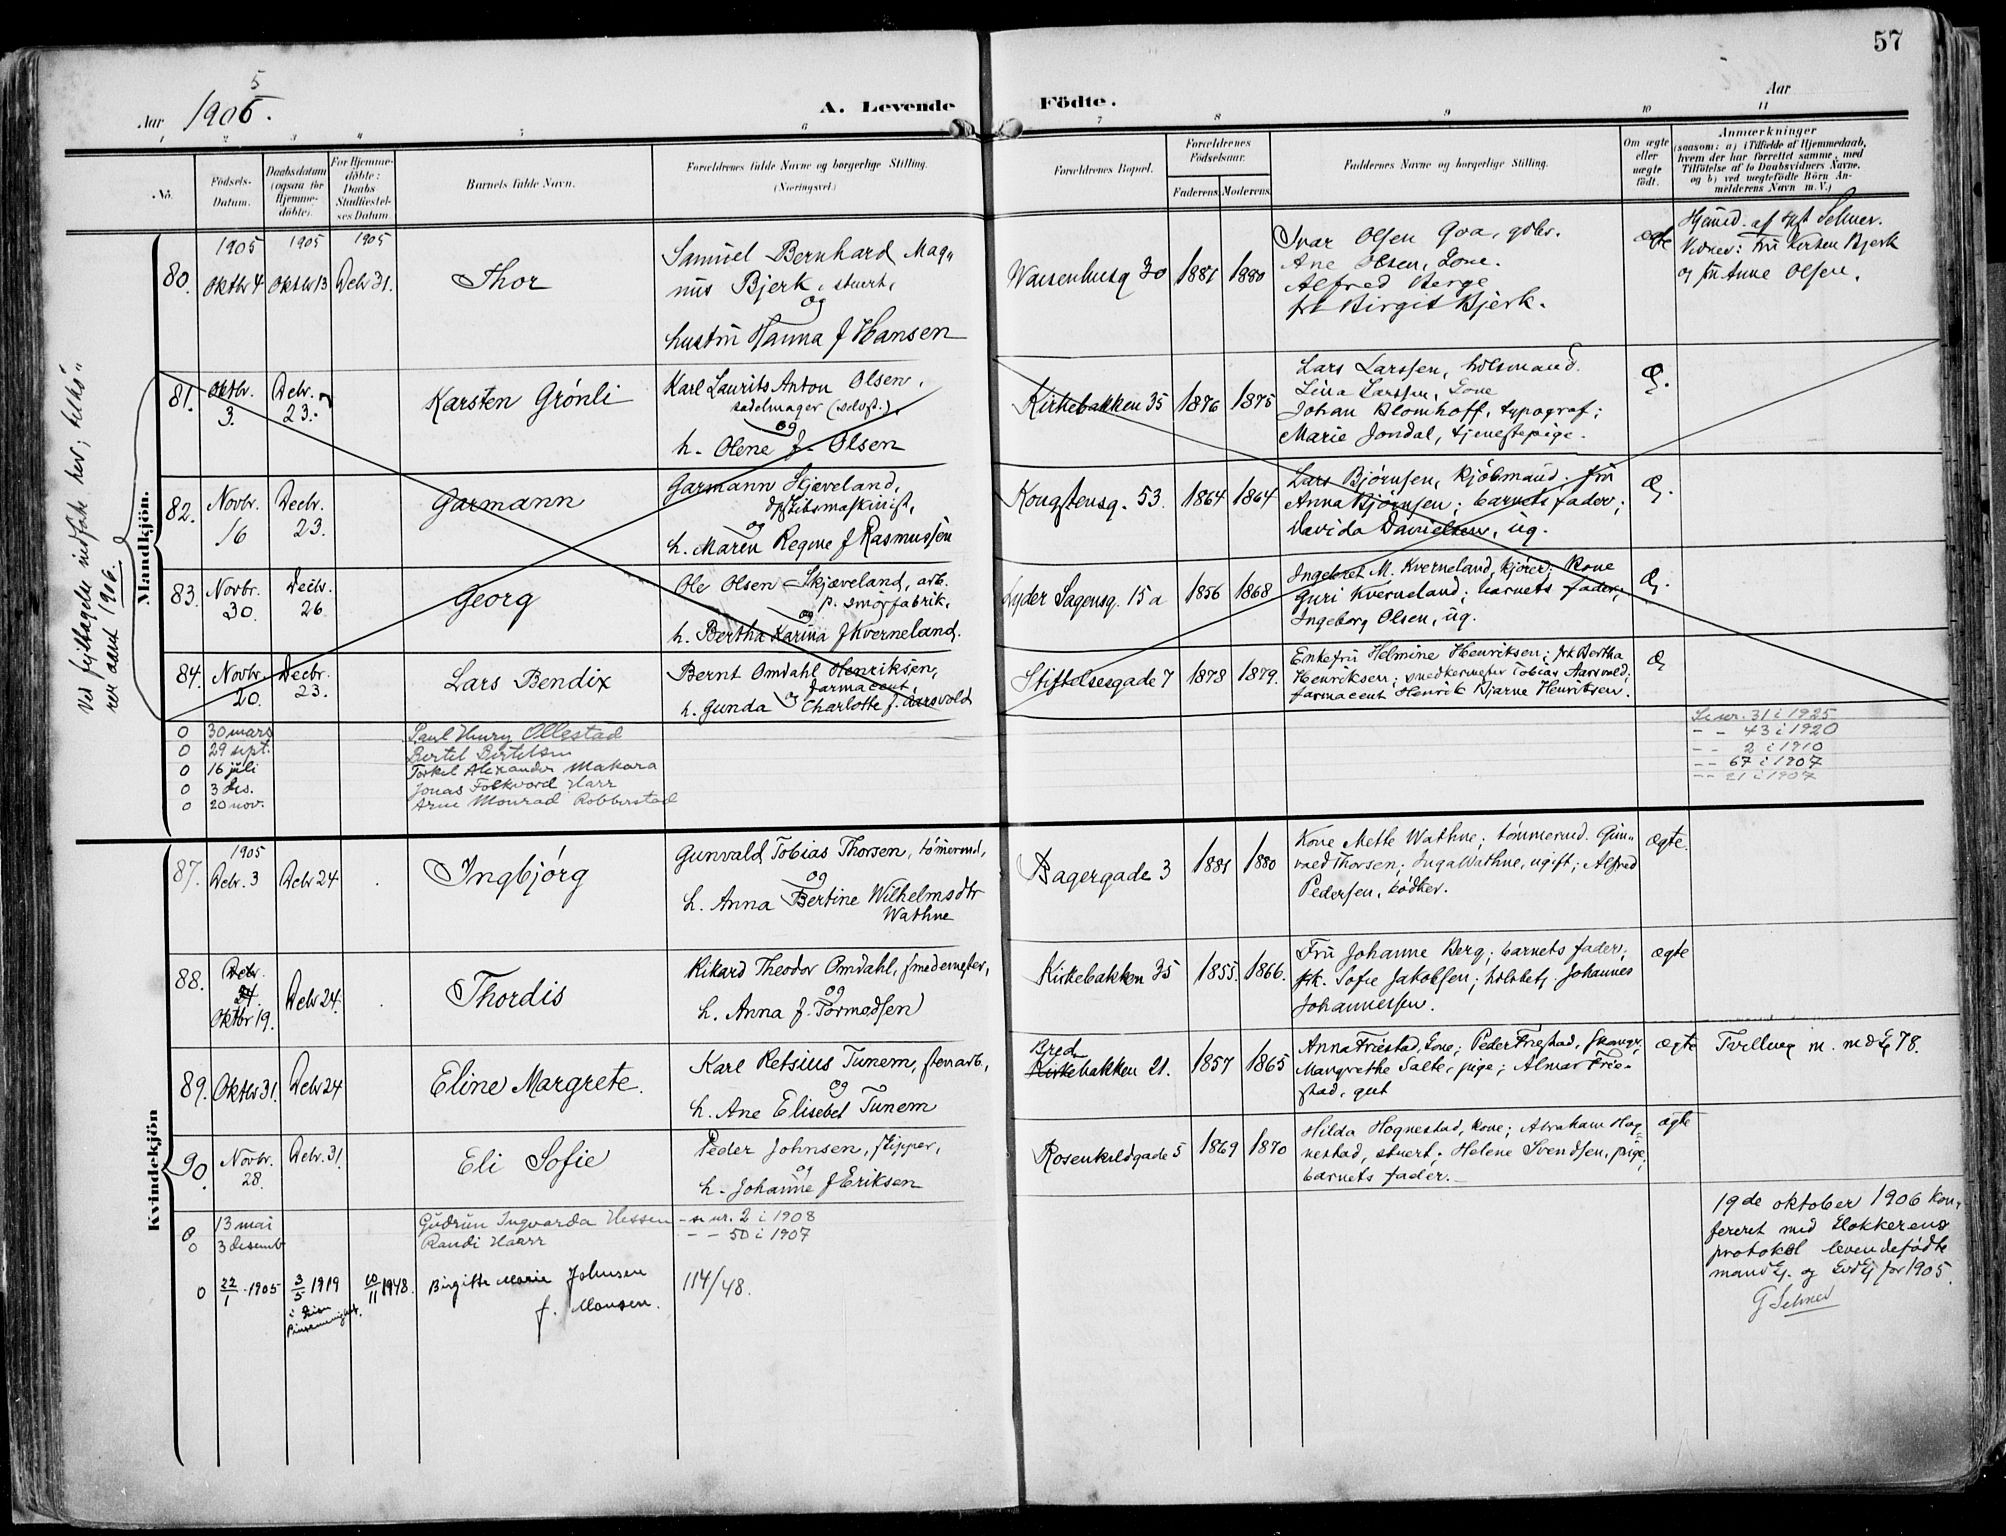 57
5
Aar 1906.
A. Levende
Födte.
Aar
1 2 3 4 5 6 7 8 9 10 11
No.
Födsels-
Datum.
Daabsdatum
(ogsaa for
Hjemme-
döbte).
For Hjemme-
döbte:
Daabs
Stadfæstel-
ses Datum
Barnets fulde Navn.
Forældrenes fulde Navne og borgerlige Stilling.
(Næringsvei.)
Forældrenes Bopæl.
Forældrenes
Födselsaar.
Faderens. Moderens.
Faddernes Navne og borgerlige Stilling.
Om ægte
eller
uægte
født.
Anmærkninger
(saasom: a) i Tilfælde af Hjemmedaab,
hvem der har forrettet samme, med
Tilføielse af to Daabsvidners Navne,
og b) ved uægtefødte Börn An-
melderens Navn m. V.)
Mandkjön.
Ved feiltagelse indført her;
rer aaret 1906.
1905 1905 1905
80. Oktbr 4 Oktbr 13 Debr 31.
Thor
Samuel Bernhard Mag-
nus Bjerk, stuert,
og
hustru Hanna f Hansen
Waisenhusg 30 1881 1880
Ivar Olsen Goa, gdbr.
Ane Olsen, Kone.
Alfred Berge
frk Birgit Bjerk.
ægte
Hjemmed. af Selmer.
Vidner: fru Kirsten Bjerk
og fru Anne Olsen.
81. Oktbr. 3. Debr. 23.
Karsten Grønli
Karl Laurits Anton Olsen,
sadelmager (selvst.),
og
h. Olene f. Olsen
Kirkebakken 35 1876 1875
Lars Larssen, holsmand.
Lina Larssen, Kone
Johan Blomhoff, typograf;
Marie Jondal, tjenestepige.
Æ.
82. Novbr. 16 Decbr. 23.
Garmann
Garmann Skjæveland,
dpskibsmaskinist,
og
h. Maren Regine f Rasmussen
Kongstensg. 53. 1864 1864
Lars Bjørnsen, kjøbmand. fru
Anna Bjørnsen; barnets fader;
Davida Danielsen, ug.
Æ.
83. Novbr. 30. Decbr. 26
Georg
Ole Olsen Skjæveland, arb.
p. smörfabrik,
og
h. Bertha Karina f Kverneland.
Lyder Sagensg. 15a 1856 1868
Ingebret M. Kverneland, kjører; Kone
Guri Kverneland; barnets fader;
Ingeborg Olsen, ug.
Æ.
84. Novbr. 20. Decbr. 23.
Lars Bendix
Bernt Omdahl Henriksen,
farmaceut
og
h. Gunda Charlotte f. Aarsvold
Stiftelsesgade 7 1878 1879.
Enkefru Helmine Henriksen; frk Bertha
Henriksen; snedkermester Tobias Aarsvold;
farmaceut Henrik Bjarne Henriksen.
Æ
0 30 mars Paul Henry Ollestad Se nr. 31 i 1925
0 29 sept. Bertel Bertelsen - - 43 i 1920
0 16 juli Torkel Alexander Makara - - 2 i 1910
0 3 des. Jonas Folkvord Harr - - 67 i 1907
0 20 nov. Arne Monrad Robberstad - - 21 i 1907
Kvindekjön
1905
87. Debr. 3 Debr 24
Ingbjørg
Gunvald Tobias Thorsen, tømermd,
og
h. Anna Bertine Wilhelmsdtr
Wathne
Bagergade 3 1881 1880
Kone Mette Wathne; tømmermd. Gun-
vald Thorsen; Inga Wathne, ugift; Alfred
Pedersen, bødker.
ægte.
88. Debr. 24. Oktbr 19. Debr 24.
Thordis
Rikard Theodor Omdahl, smedemester,
og
h. Anna f. Tormodsen
Kirkebakken 35 1855. 1866.
Fru Johanne Berg; barnets fader;
frk. Sofie Jakobsen; Johannes
Johannessen.
ægte
89. Oktbr 31. Debr 24
Eline Margrete.
Karl Retsius Tunem, stenarb.,
og
h. Ane Elisebet Tunem
Bred
Kirkebakken 21. 1857 1865
Anna Friestad, Kone; Peder Friestad,
Margrethe Salte, pige; Almar Frie-
stad, gut
ægte
Tvilling m. md Ej 78.
90. Novbr. 28. Debr. 31.
Eli Sofie
Peder Johnsen, skipper,
og
h. Johanne f Eriksen
Rosenkildgade 5 1869 1870
Hilda Hognestad, kone; Abraham Hog-
nestad, stuert; Helene Svendsen, pige;
barnets fader.
ægte
0 13 mai Gudrun Ingvarda Hessen - se nr. 2 i 1908
0 3 desemb Randi Haarr - - 50 i 1907
0 22/1 1905 3/5 1919 10/11 1948. Birgitte Marie Johnsen 114/48.
i
f. Monsen.
19de oktober 1906 kon-
fereret med klokkerens
protokol levendefödte
mandkj. og kvdkj for 1905.
G Selmer